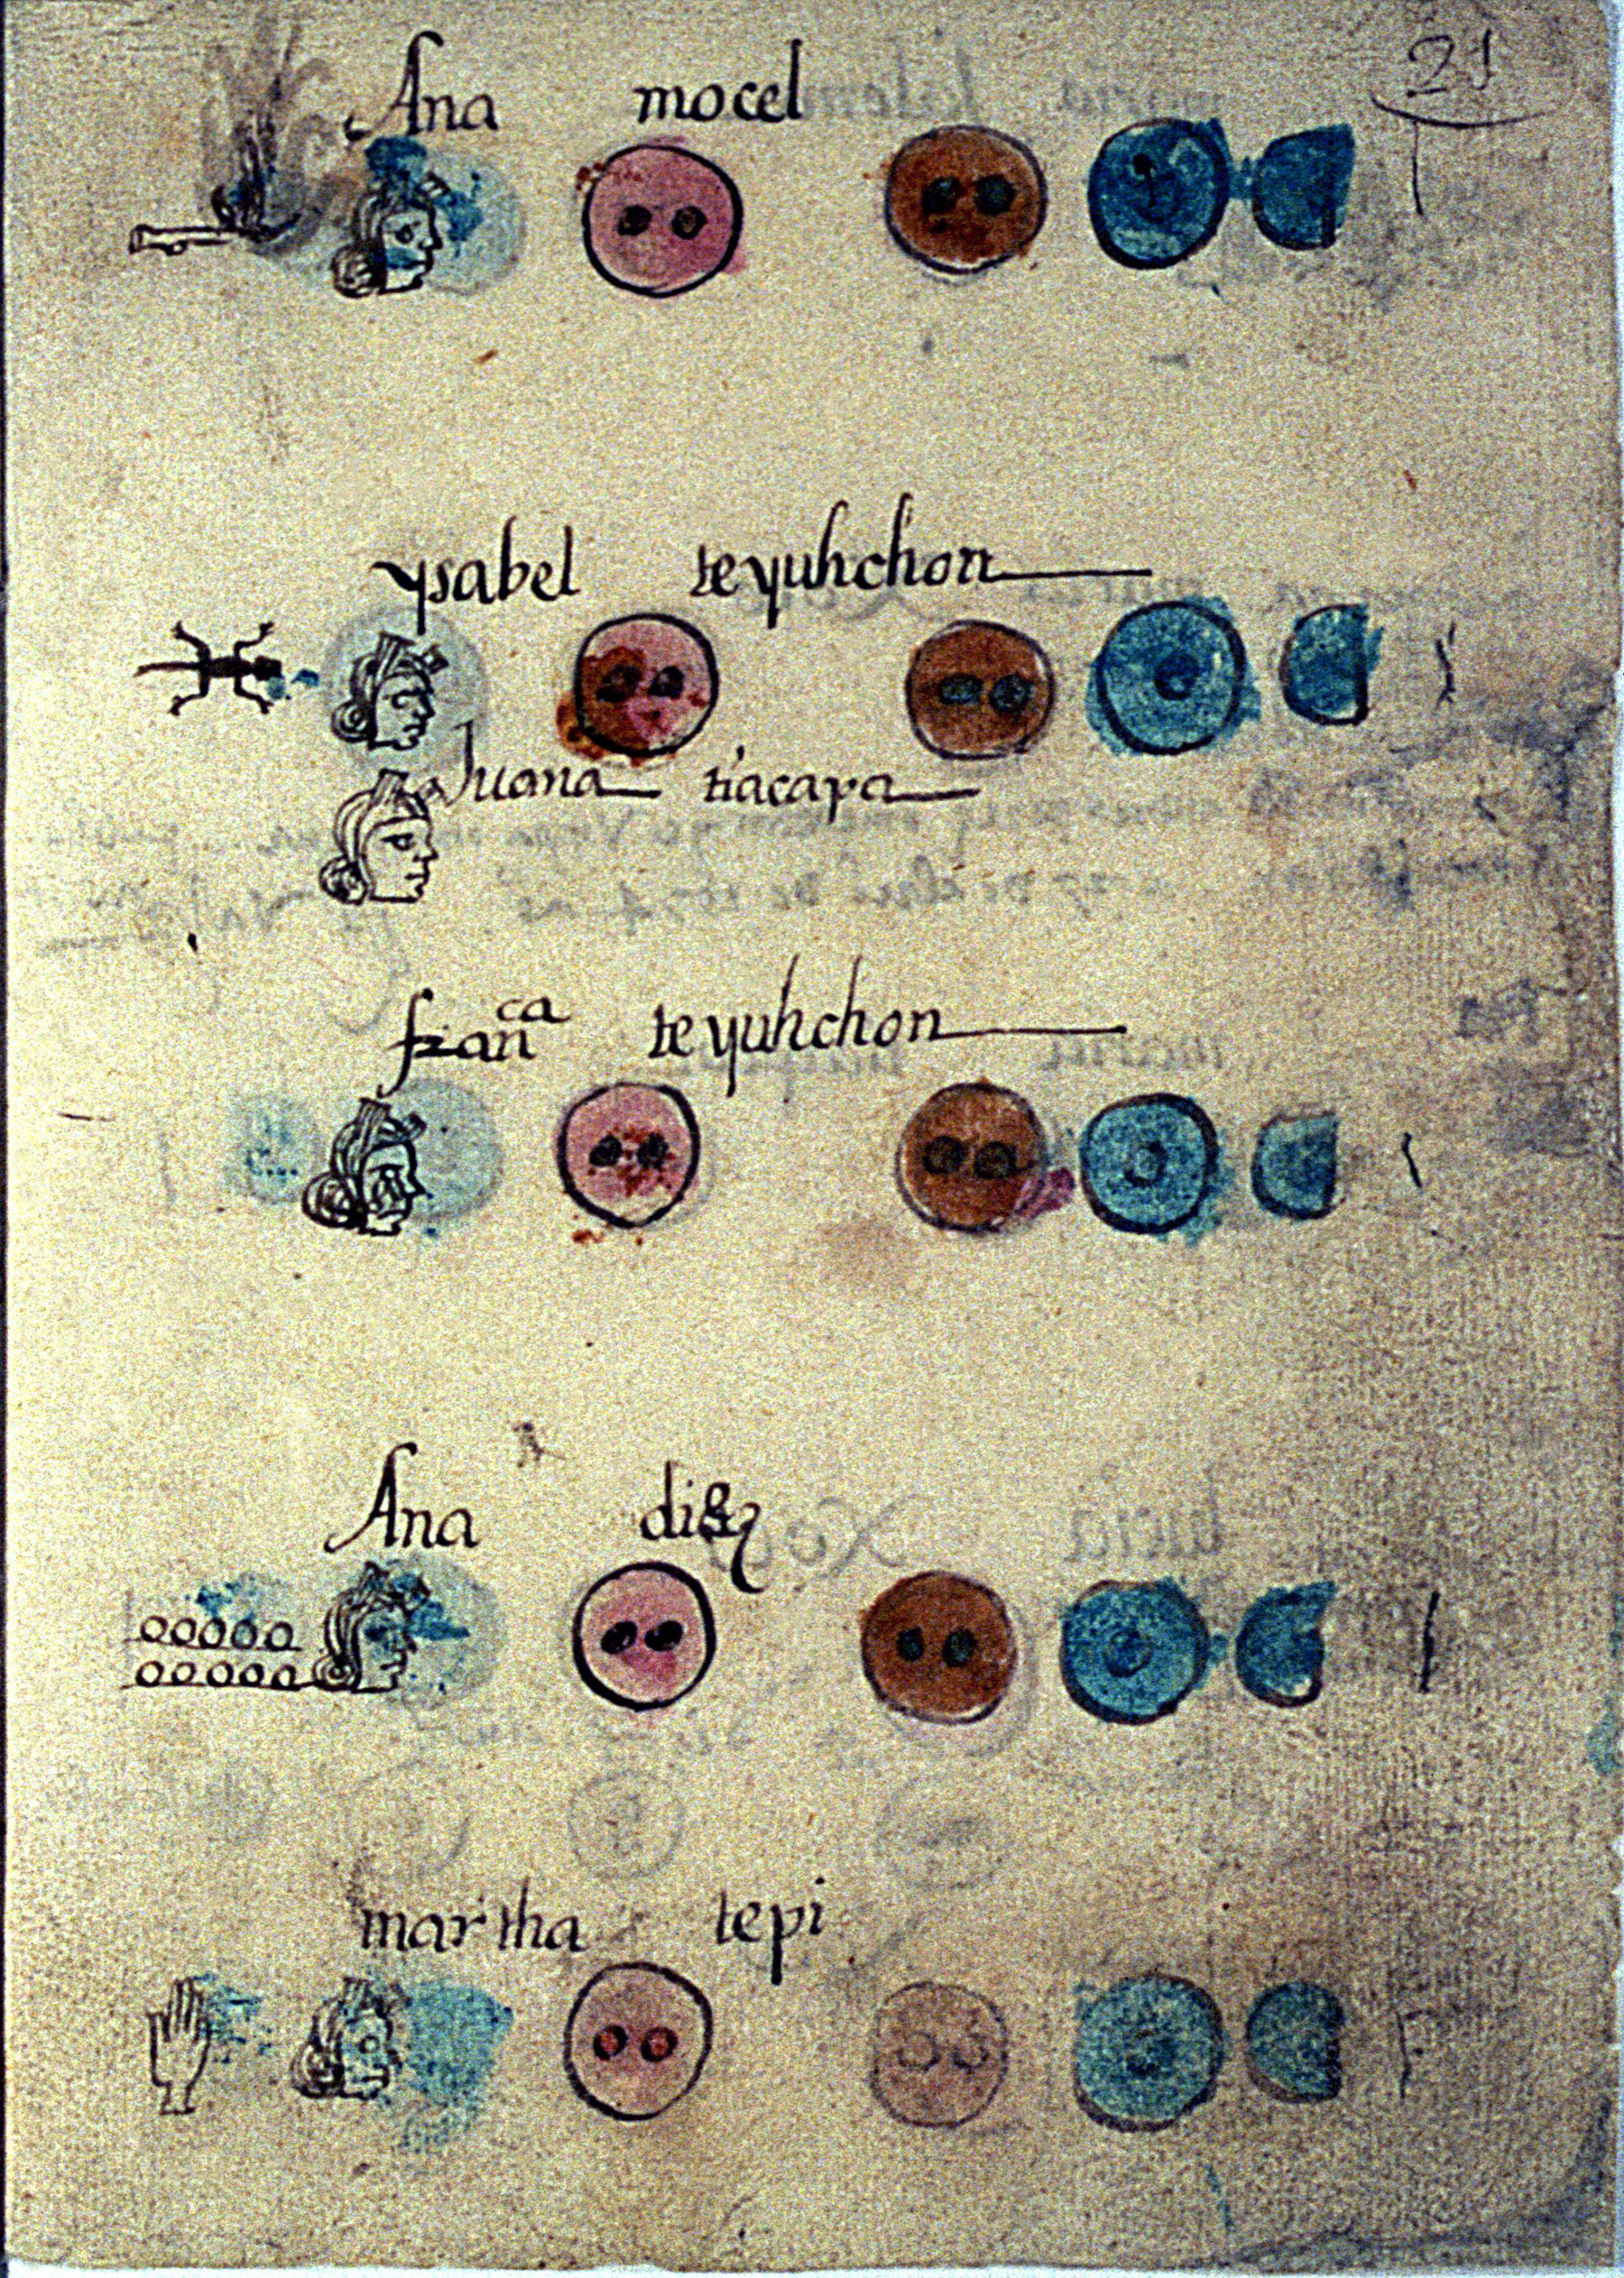 21
Ana mocel
ysabel teyuhchon
Juana tiacapa
franca teyuhchon
Ana diez
martha tepi